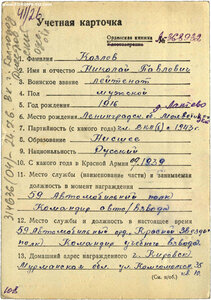 41/26
Учетная карточка
Орденская книжка
№
1. Фамилия Козлов
2. Имя и отчество Николай Павлович
3. Воинское звание лейтенант
4. Пол мужской
5. Год рождения 1916
6. Место рождения Ленинградской
7. Партийность (с какого года) чл. ВКП(б) с 1943 г.
8. Образование Низшее
9. Национальность Русский
10. С какого года в Красной Армии 1939
11. Место службы (наименование части) и занимаемая
должность в момент награждения
59 Автомобильный полк
Командир авто/взвода
12. Место службы и должность в настоящее время
59 Автомобильный орд. Красной Звезды
полк) Командир учебного взвода
13. Домашний адрес награжденного г. Кировск
Мурманской обл. ул. Комсомольская
(См. н/об.)
108